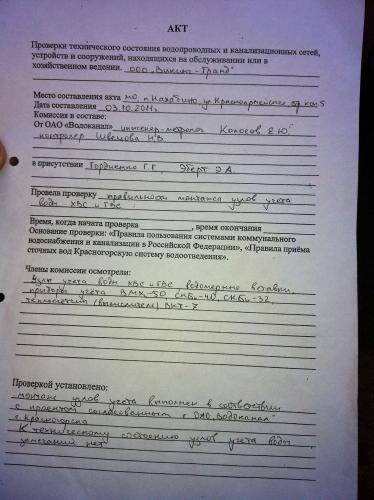 АКТ
Проверки технического состояния водопроводных и канализационных сетей,
устройств и сооружений, находящихся на обслуживании или в
хозяйственном ведении. ООО "Викинг-Гранд"
Место составления акта МО, п. Нахабино, ул Красноармейская,
Дата составления 03.10.2011г.
Комиссия в составе:
От ОАО «Водоканал» инженер-метролог Колосов Е.Ю.
контролер Швецова Н.В.
в присутствии Гордиенко Г.Г., Эберт Э.А.
Провела проверку правильности монтажа узлов учета
воды ХВС и ГВС
Время, когда начата проверка , время окончания
Основание проверки: «Правила пользования системами коммунального
водоснабжения и канализации в Российской Федерации», «Правила приёма
сточных вод Красногорскую систему водоотведения».
Члены комиссии осмотрели:
Узлы учета воды ХВС и ГВС водомерные вставки,
приборы учета ВМХ-50, СКБи-40, СКБи-32,
теплосчетчик (вычислитель) ВКТ-7
Проверкой установлено:
монтаж узлов учета выполнен в соответствии
с проектом согласованным с ОАО "Водоканал"
г. Красногорска
К техническому состоянию узлов учета воды
замечаний нет